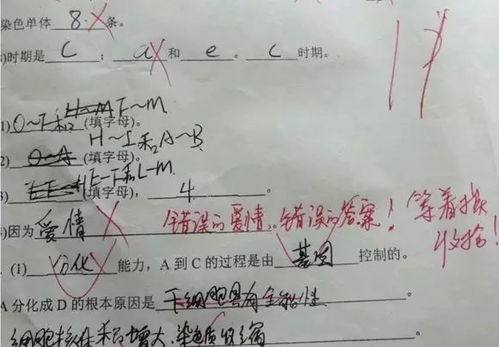 染色体单体 8 条。
时期是 C ; a 和 e 。 C 时期。
1) O~F和 F~M (填字母)。
2) H~I和A~B (填字母)。
3) F~I和L~M (填字母), 4 。
因为 爱情 错误的爱情、错误的答案! 等着找
收拾!
(1) 分化 能力,A 到 C 的过程是由 基因 控制的。
A 分化成 D 的根本原因是 干细胞具有全能性
细胞核体积增大、染色质收缩